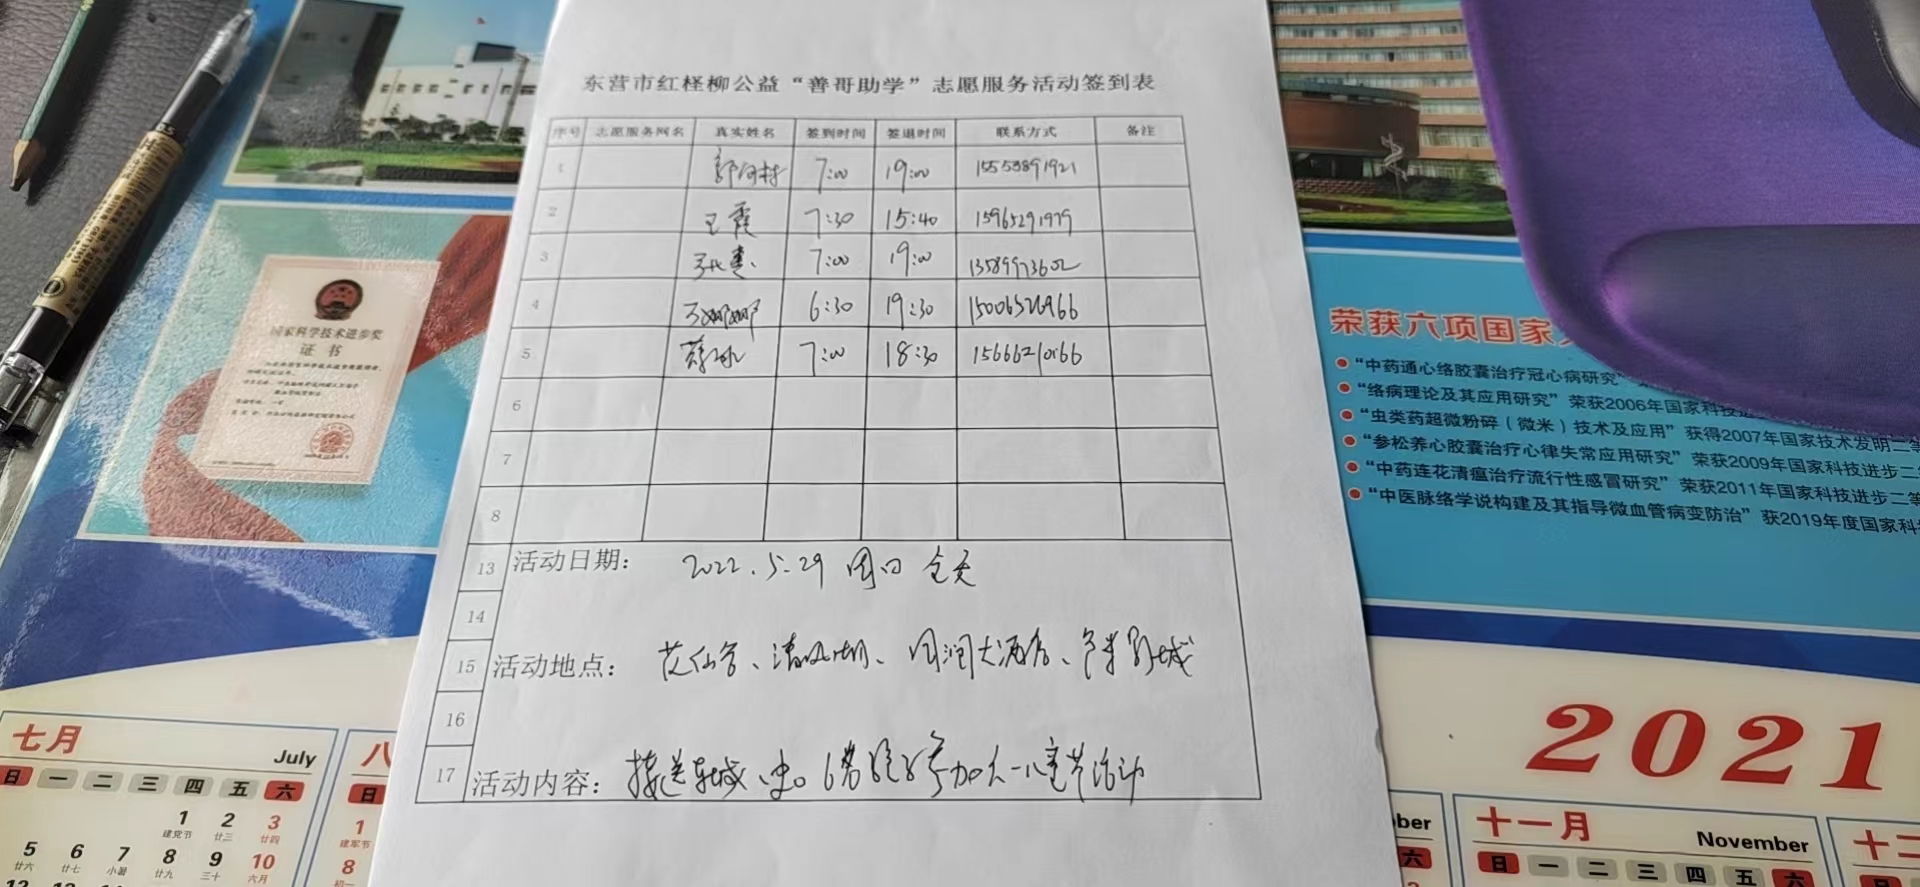 东营市红柽柳公益“善哥助学”志愿服务活动签到表
序号 志愿服务网名 真实姓名 签到时间 签退时间 联系方式 备注
1 7:00 19:00 15553891921
2 王霞 7:30 15:40 15965291979
3 张惠 7:00 19:00 13589973602
4 6:30 19:30 15006526966
5 7:00 18:30 15666210166
6
7
8
13 活动日期: 2022.5.29 周日 全天
14
15 活动地点: 清风湖、国润大酒店、
16
17 活动内容: 接送 参加六一儿童节活动
国家科学技术进步奖
证书
荣获六项国家
“中药通心络胶囊治疗冠心病研究”
“络病理论及其应用研究” 荣获2006年国家科技进
“虫类药超微粉碎(微米)技术及应用” 获得2007年国家技术发明二等
“参松养心胶囊治疗心律失常应用研究” 荣获2009年国家科技进步二
“中药连花清瘟治疗流行性感冒研究” 荣获2011年国家科技进步二等
“中医脉络学说构建及其指导微血管病变防治” 获2019年度国家科
2021
七月 July
日 一 二 三 四 五 六
1 2 3
建党节 廿三 廿四
5 6 7 8 9 10
廿六 廿七 小暑 廿九 三十 六月
八
日
1
建军节
8
ber
六
十一月 November
日 一 二 三 四 五 六
十二
0.5